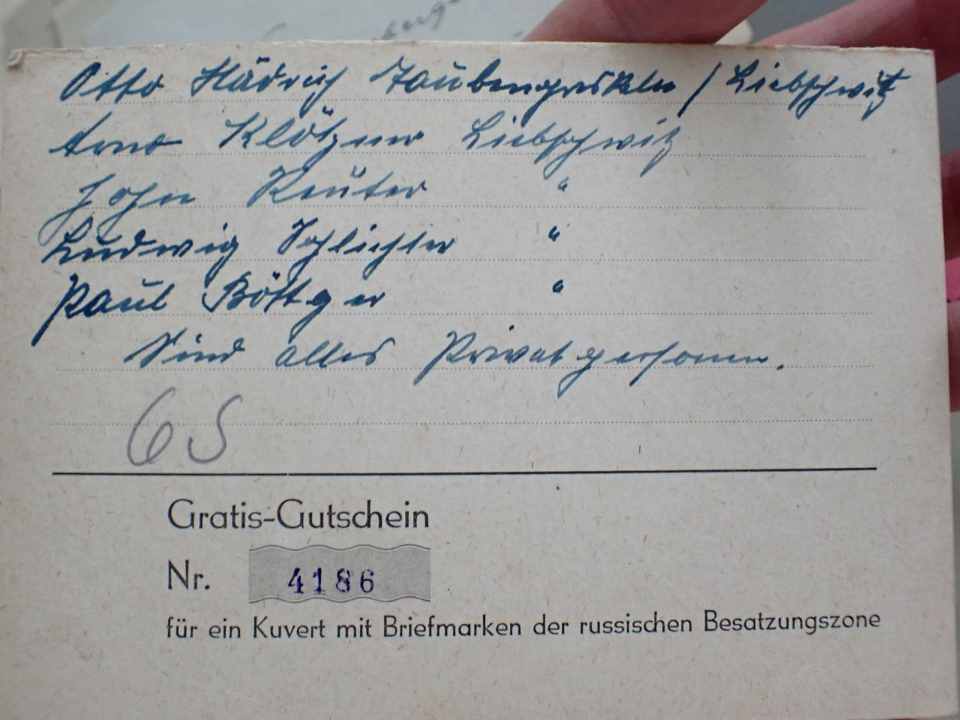 Otto Hädrich Taubenpreskeln / Liebschwitz
Arno Klötzner Liebschwitz
John Reuter "
Ludwig Schlichter "
Paul Böttger "
Sind alles Privatpersonen.
GS
Gratis-Gutschein
Nr. 4186
für ein Kuvert mit Briefmarken der russischen Besatzungszone